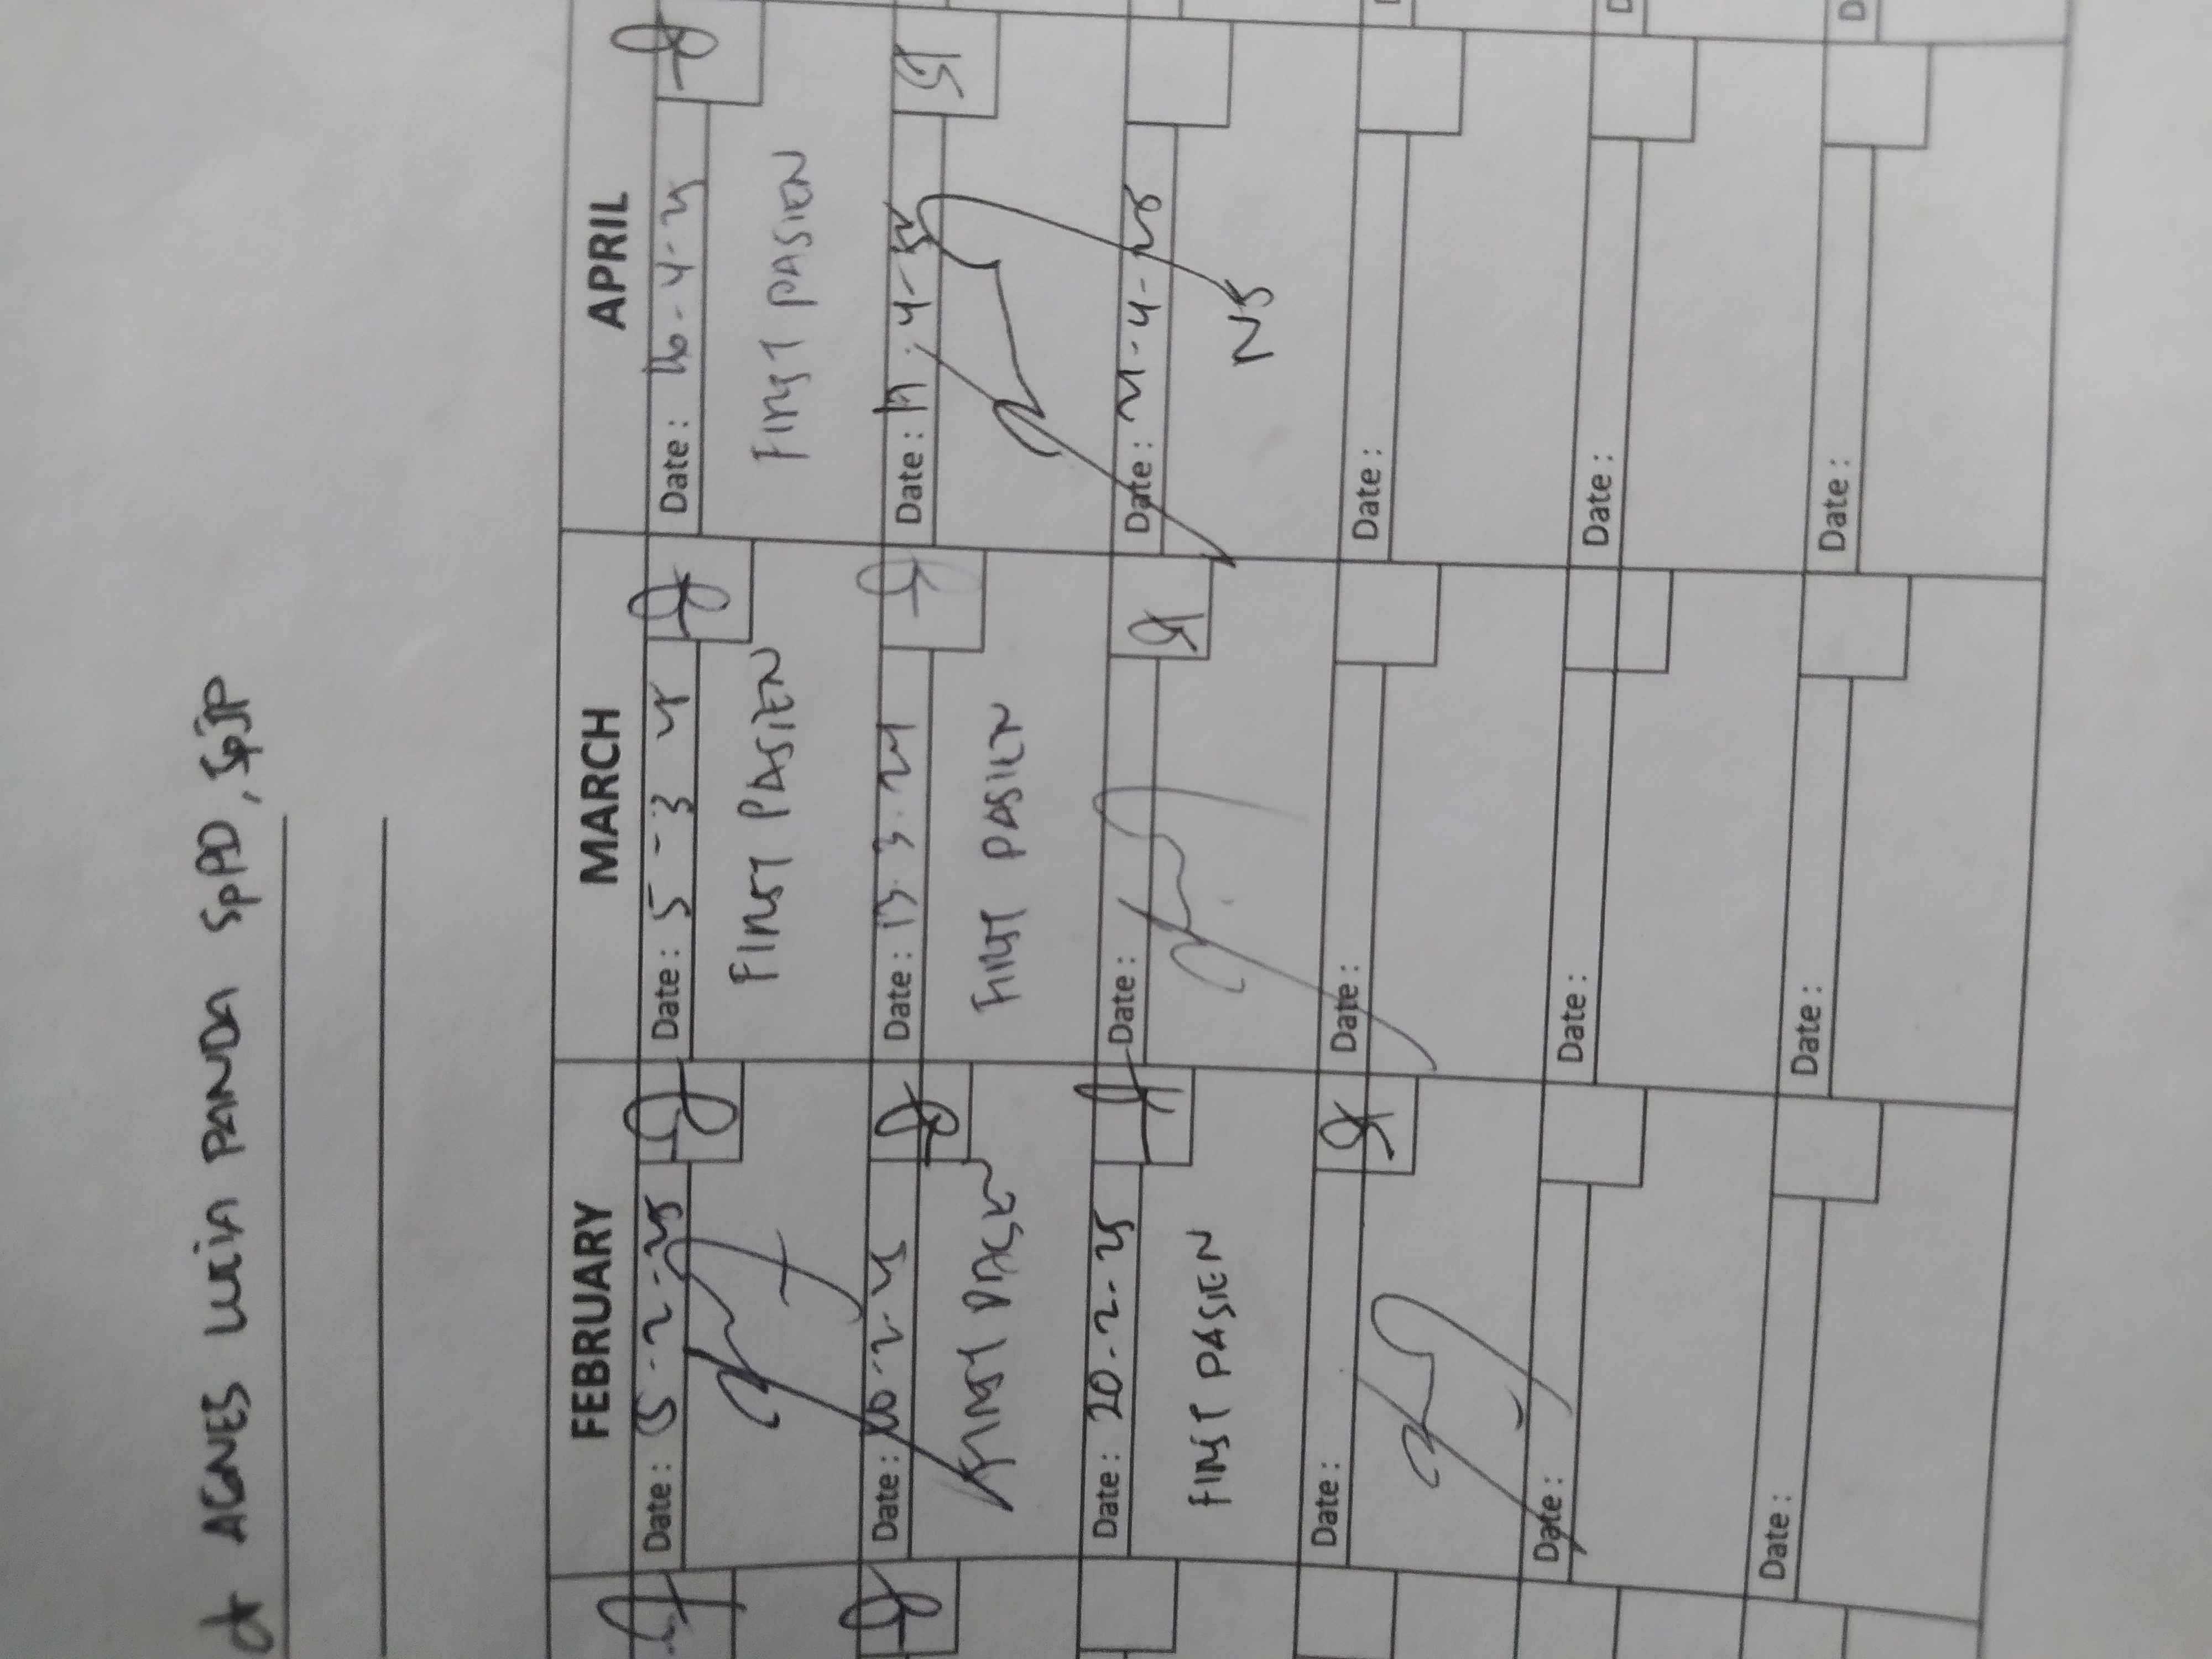 dr AGNES LUCIA PANDA SpPD, SpJP
FEBRUARY
MARCH
APRIL
Date: 5-2-25
Date: 5-3
Date: 16-4-25
FIRST PASIEN
FIRST PASIEN
Date:
Date: 13.3.24
Date:
FIRST
FIRST PASIEN
Date: 20-2-25
Date:
Date: 21-4-25
FIRST PASIEN
NS
Date:
Date:
Date:
Date:
Date:
Date:
Date:
Date:
Date: